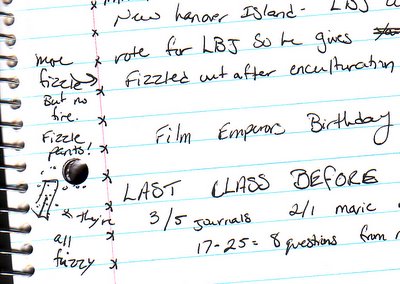 New Hanover Island - LBJ
vote for LBJ so he gives
Fizzled out after enculturation
Film Emperors Birthday
LAST CLASS BEFORE
3/5 journals 2/1
17-25 = 8 questions from
more
fizzle →
But no
fire.
Fizzle
pants!
* they're
all
fuzzy